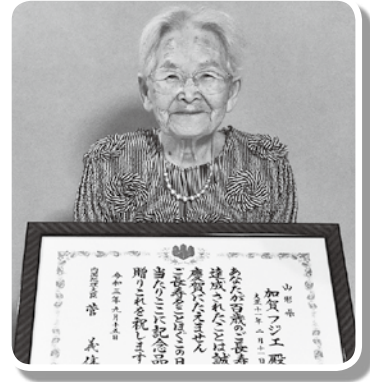 山形県
加賀フジエ 殿
大正十一年二月十一日
あなたが百歳のご長寿
達成されたことは誠
慶賀にたえません
ご長寿をことほぐこの日
当たりここに記念品
贈りこれを祝します
令和三年九月十五日
内閣総理大臣 菅 義